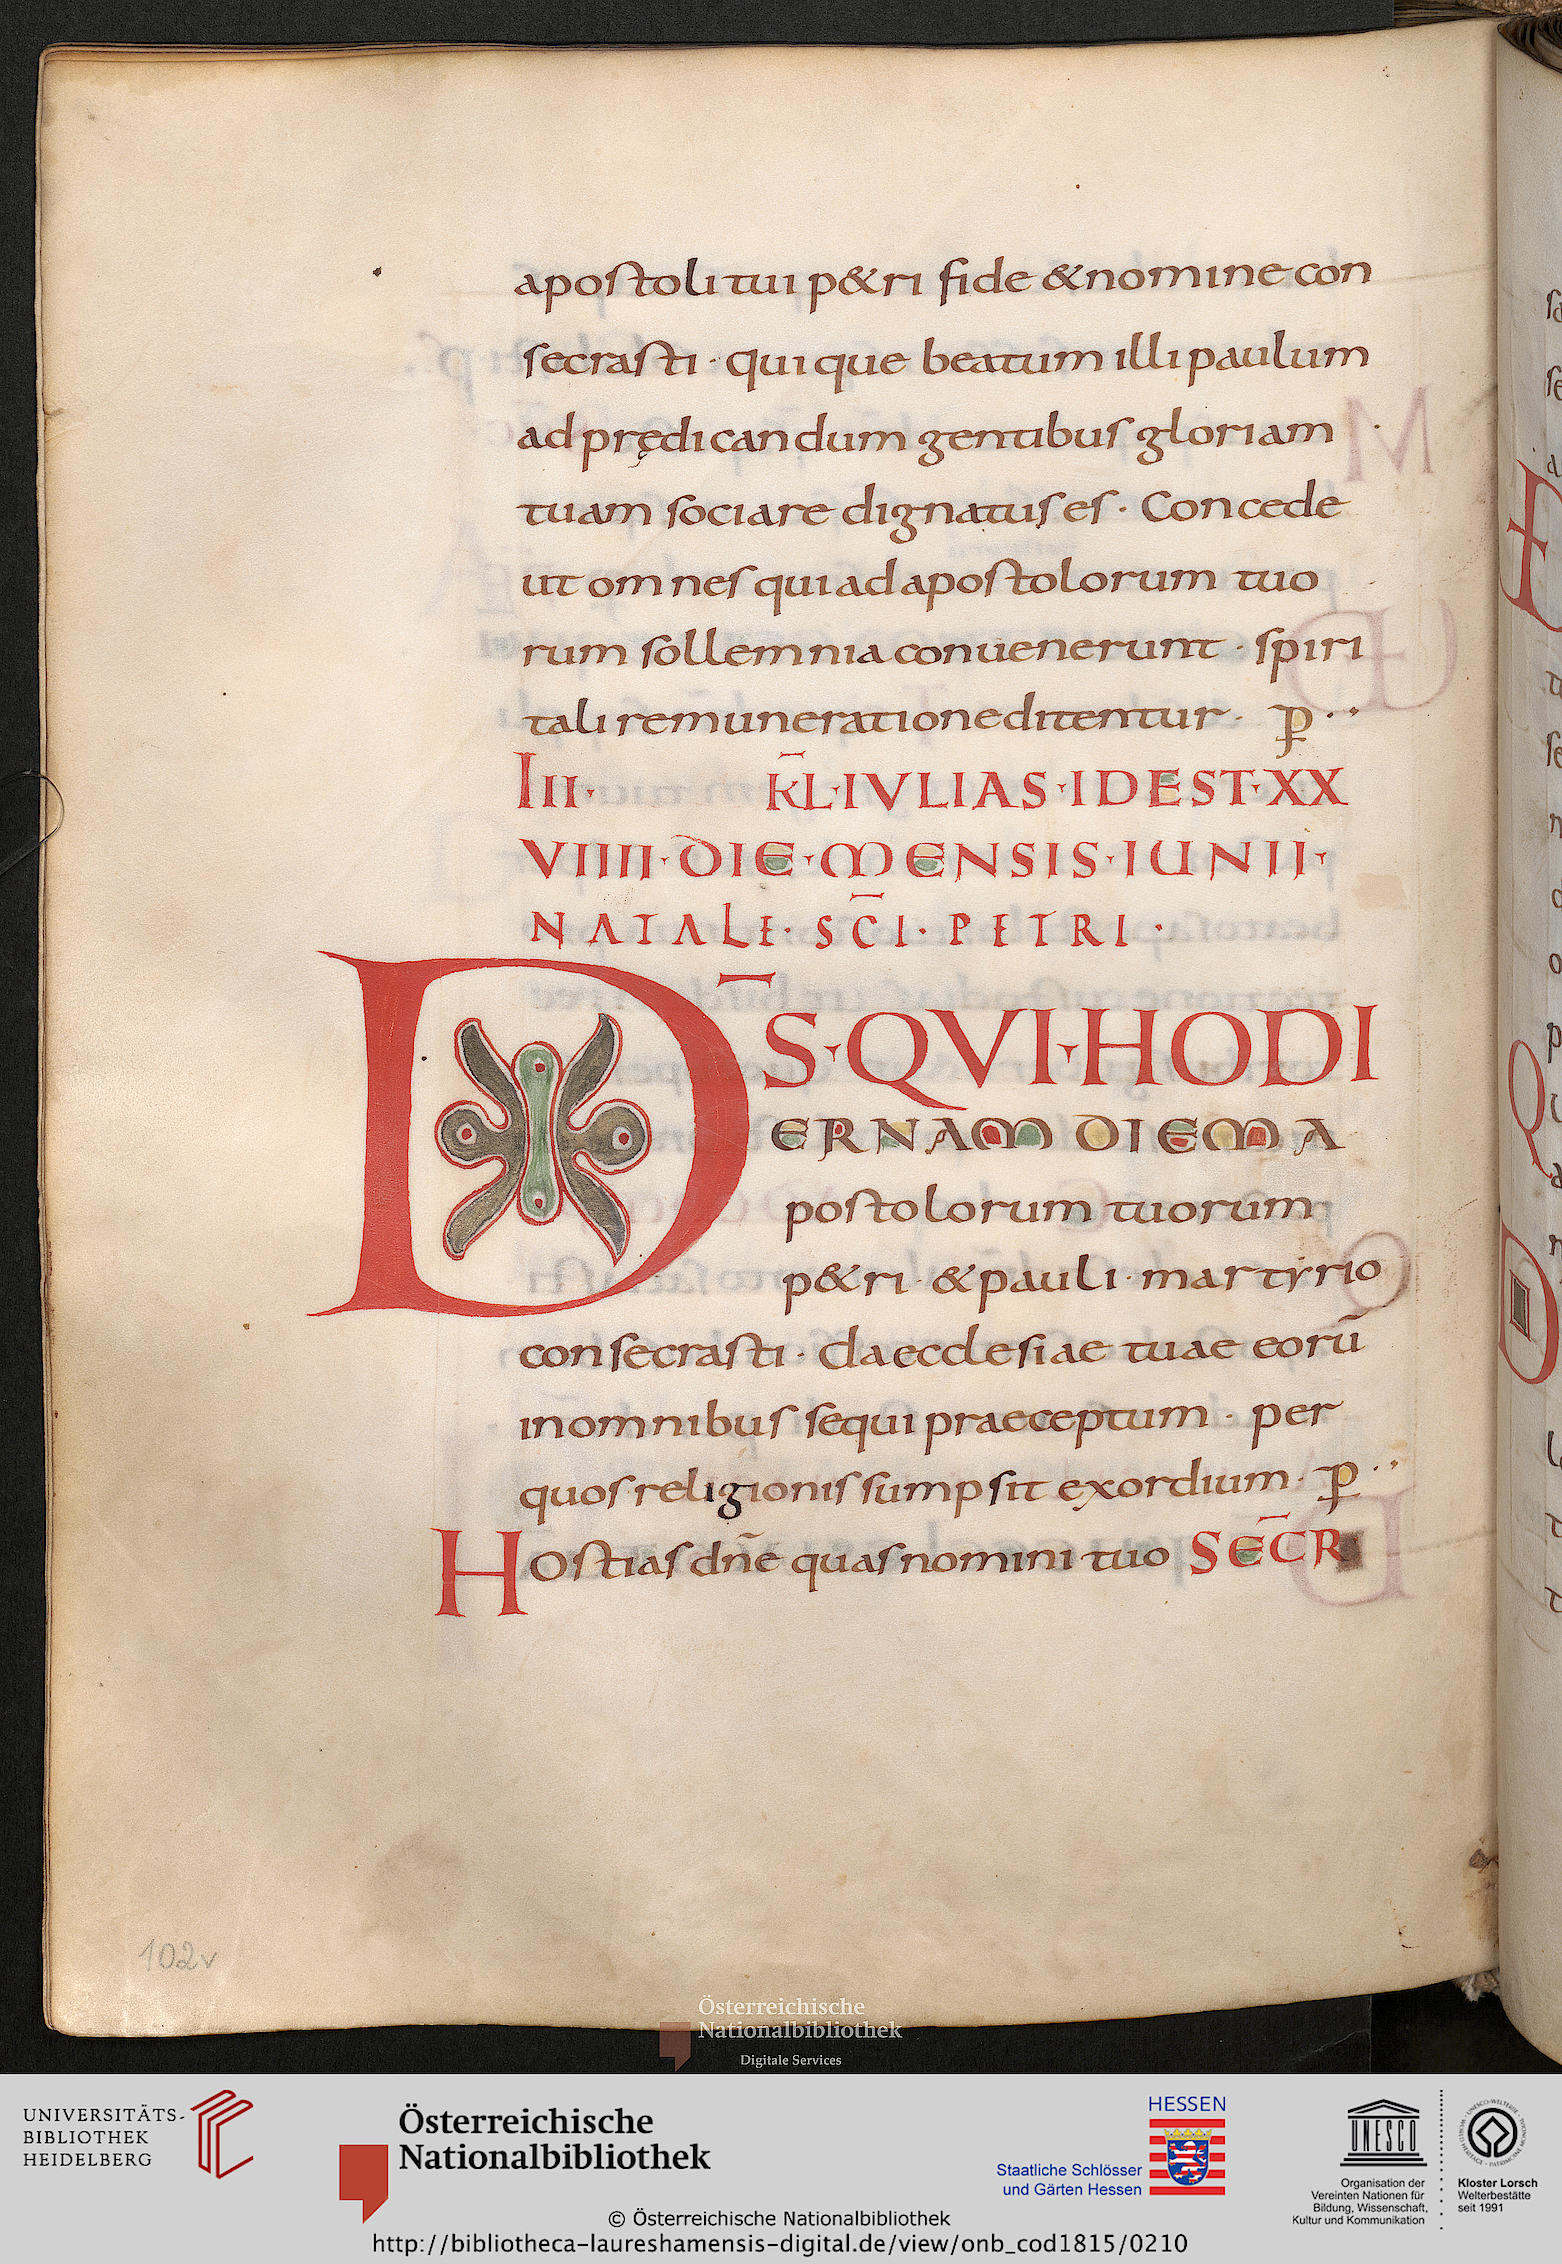 apostoli tui p&ri fide & nomine con
secrasti · quique beatum illi paulum
ad prędicandum gentibus gloriam
tuam sociare dignatus es · Concede
ut omnes qui ad apostolorum tuo
rum sollemnia conuenerunt · spiri
tali remuneratione ditentur · p̱
III · KL̅ · IVLIAS · IDEST · XX
VIIII · DIE · MENSIS · IUNII ·
NATALE · SC̅I · PETRI ·
DS̅ · QVI · HODI
ERNAM DIEM A
postolorum tuorum
p&ri · & pauli · martyrio
consecrasti · da ecclesiae tuae eorū
in omnibus sequi praeceptum · per
quos religionis sumpsit exordium · p̱
HOstias dn̄e quas nomini tuo SEC̅R
102v
Österreichische
Nationalbibliothek
Digitale Services
UNIVERSITÄTS-
BIBLIOTHEK
HEIDELBERG
Österreichische
Nationalbibliothek
HESSEN
Staatliche Schlösser
und Gärten Hessen
UNESCO
Organisation der
Vereinten Nationen für
Bildung, Wissenschaft,
Kultur und Kommunikation
Kloster Lorsch
Welterbestätte
seit 1991
© Österreichische Nationalbibliothek
http://bibliotheca-laureshamensis-digital.de/view/onb_cod1815/0210